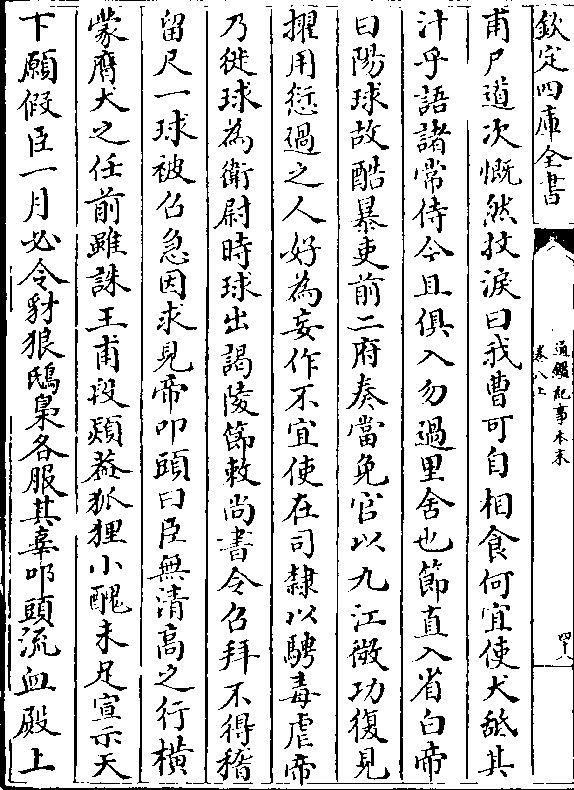 欽定四庫全書
通鑑紀事本末
卷八上
四十八
甫尸道次慨然抆淚曰我曹可自相食何宜使犬舐其
汁乎語諸常侍今且俱入勿過里舍也節直入省白帝
曰陽球故酷暴吏前二府奏當免官以九江微功復見
擢用愆過之人好為妄作不宜使在司隸以騁毒虐帝
乃徙球為衛尉時球出謁陵節敕尚書令召拜不得稽
留尺一球被召急因求見帝叩頭曰臣無清高之行橫
蒙鷹犬之任前雖誅王甫段熲蓋狐狸小醜未足宣示天
下願假臣一月必令豺狼鴟梟各服其辜叩頭流血殿上